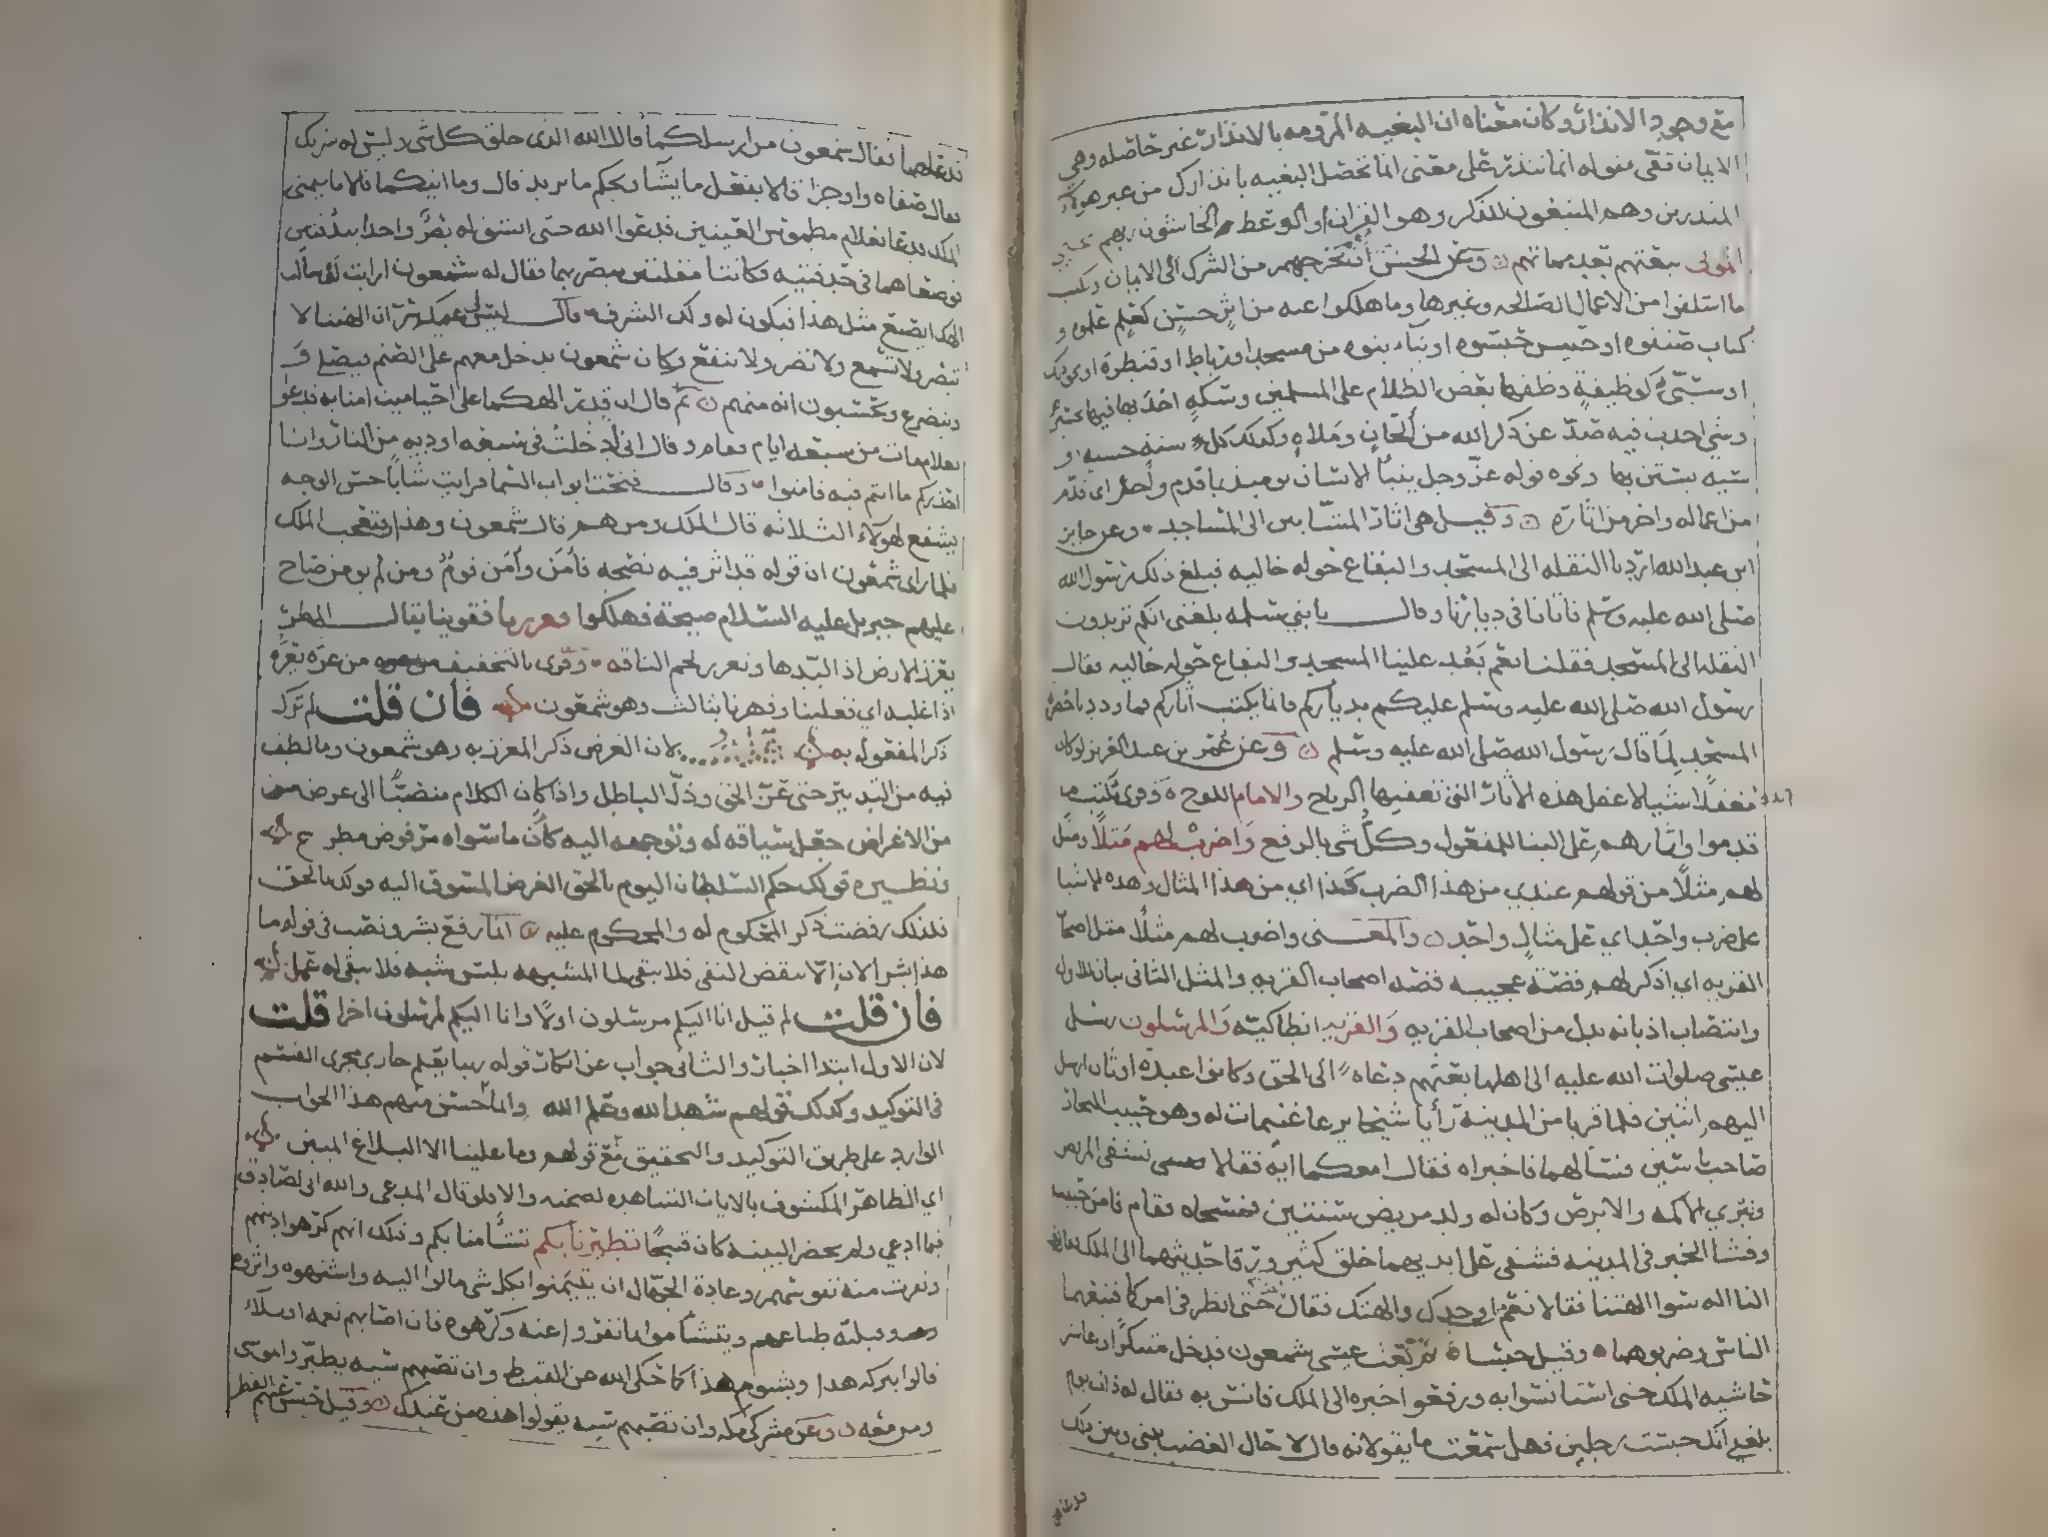 مع وجود الانذار وكان معناه ان البغيه المرومه بالانذار غير حاصله وهي
الايمان قفى بقوله انما تنذر على معنى انما تحصل البغيه بانذارك من غير هولاء
المنذرين وهم المتبعون للذكر وهو القران او الوعظ الخاشون ربهم نحيي
الموتى نبعثهم بعد مماتهم وعن الحسن اخراجهم من الشرك الى الايمان ونكتب
ما اسلفوا من الاعمال الصالحه وغيرها وما هلكوا عنه من اثر حسن كعلم علموه و
كتاب صنفوه او حبيس حبسوه او بناء بنوه من مسجد او رباط او قنطرة او نحو ذلك
او سيئ كوظيفة وظفها بعض الظلام على المسلمين وسكة احدثها فيها تخسير
وشي احدث فيه صد عن ذكر الله من الحان وملاه وكذلك كل سنه حسنه او
سيئه يستن بها ونحوه قوله عز وجل ينبأ الانسان يومئذ بما قدم واخر اى قدم
من اعماله واخر من اثاره وقيل هي اثار المشائين الى المساجد وعن جابر
ابن عبد الله اردنا النقله الى المسجد والبقاع حوله خاليه فبلغ ذلك رسول الله
صلى الله عليه وسلم فاتانا فى ديارنا وقال يا بني سلمه بلغنى انكم تريدون
النقله الى المسجد فقلنا نعم بعد علينا المسجد والبقاع حوله خاليه فقال
رسول الله صلى الله عليه وسلم عليكم دياركم فانما يكتب اثاركم فما وددنا حضرة
المسجد لما قال رسول الله صلى الله عليه وسلم وعن عمر بن عبد العزيز لو كان
مغفلا شيا لاغفل هذه الاثار التى تعفيها الرياح والامام اللوح وقرى يكتب ما
قدموا واثارهم على البنا للمفعول وكل شى بالرفع واضرب لهم مثلا ومثل
لهم مثلا من قولهم عندي من هذا الضرب كذا اي من هذا المثال وهذه الاشيا
على ضرب واحد اي على مثال واحد والمعنى واضرب لهم مثلا مثل اصحاب
القريه اي اذكر لهم قصة عجيبه قصه اصحاب القريه والمثل الثانى بيان للاول
وانتصاب اذ بانه بدل من اصحاب القريه والقريه انطاكيه والمرسلون رسل
عيسى صلوات الله عليه الى اهلها بعثهم دعاه الى الحق وكانوا عبدة اوثان ارسل
اليهم اثنين فلما قربا من المدينه رأيا شيخا يرعا غنيمات له وهو حبيب النجار
صاحب يسٓ فسألهما فاخبراه فقال امعكما ايه فقالا نشفى المريض
ونبري الاكمه والابرص وكان له ولد مريض سنتين فمسحاه فقام فامن حبيب
وفشا الخبر فى المدينه فشفي على ايديهما خلق كثير ورقا حديثهما الى الملك
النا اله سوا الهتنا فقالا نعم اوجدك والهتك فقال حتى انظر فى امركما فتبعهما
الناس وضربوهما وقيل حبسا ثم بعث عيسى شمعون فدخل متنكرا وعاشر
حاشيه الملك حتى استانسوا به ورفعوا خبره الى الملك فانس به فقال له ذات يوم
بلغني انك حبست رجلين فهل سمعت ما يقولانه قال لا حال الغضب بيني وبين ذلك
فدعاهما
فدعاهما فقال شمعون من ارسلكما قالا الله الذى خلق كل شى وليس له شريك
فقال صفاه واوجزا قالا يفعل ما يشآ ويحكم ما يريد قال وما ايتكما قالا ما يتمنى
الملك فدعا بغلام مطموس العينين فدعوا الله حتى انشق له بصر واخذا بندقتين
فوضعاهما فى حدقتيه فكانتا مقلتين يبصر بهما فقال له شمعون ارايت لو سألت
الهك ان يصنع مثل هذا فيكون لك وله الشرف قال ليس لى عنك سر ان الهنا لا
يبصر ولا يسمع ولا يضر ولا ينفع وكان شمعون يدخل معهم على الصنم فيصلي و
ويتضرع ويحسبون انه منهم ثم قال ان قدر الهكما على احيا ميت امنا به فدعوا
بغلام مات من سبعه ايام فقام وقال انى ادخلت فى سبعه اوديه من النار وانا
احذركم ما انتم فيه فامنوا وقال فتحت ابواب السما فرايت شابا حسن الوجه
يشفع لهولاء الثلاثه قال الملك ومن هم قال شمعون وهذان فتعجب الملك
فلما راى شمعون ان قوله قد اثر فيه نصحه فآمن وآمن قوم ومن لم يومن صاح
عليهم جبريل عليه السلام صيحة فهلكوا فعززنا فقوينا يقال المطر
يعزز الارض اذا لبدها وتعزز لحم الناقه وقرى بالتخفيف من عزه يعزه
اذا غلبه اي فغلبنا وقهرنا بثالث وهو شمعون فان قلت لم ترك
ذكر المفعول به لان الغرض ذكر المعزز به وهو شمعون وما لطف
فيه من التدبير حتى عز الحق وذل الباطل واذا كان الكلام منصبا الى غرض
من الاغراض جعل سياقه له وتوجهه اليه كأن ما سواه مرفوض مطرح
ونظيره قولك حكم السلطان اليوم بالحق الغرض المسوق اليه قولك بالحق
فلذلك رفضت ذكر المحكوم له والمحكوم عليه انما رفع بشر ونصب فى قوله ما
هذا بشرا لان الا تنقض النفى فلا يبقى لما المشبهه بليس شبه فلا يبقى له عمل
فان قلت لم قيل انا اليكم مرسلون اولا وانا اليكم لمرسلون اخرا قلت
لان الاول ابتدا اخبار والثانى جواب عن انكار قوله ربنا يعلم جارى مجرى القسم
فى التوكيد وكذلك قولهم شهد الله وعلم الله وانما حسن منهم هذا الجواب
الوارد على طريق التوكيد والتحقيق مع قولهم وما علينا الا البلاغ المبين
اي الظاهر المكشوف بالايات الشاهده لصحته والا فلو قال المدعى والله انى لصادق
فيما ادعي ولم يحضر البينه كان قبيحا تطيرنا بكم تشأمنا بكم وذلك انهم كرهوا دينهم
ونفرت منه نفوسهم وعادة الجهال ان يتيمنوا بكل شى مالوا اليه واشتهوه واثروه
وقبلته طباعهم ويتشأموا بما نفروا عنه وكرهوه فان اصابهم نعمه او بلآء
قالوا ببركه هذا وبشوم هذا كما حكى الله عن القبط وان تصبهم سيئه يطيروا بموسى
ومن معه وعن مشركى مكه وان تصبهم سيئه يقولوا هذه من عندك وقيل حبس عنهم القطر